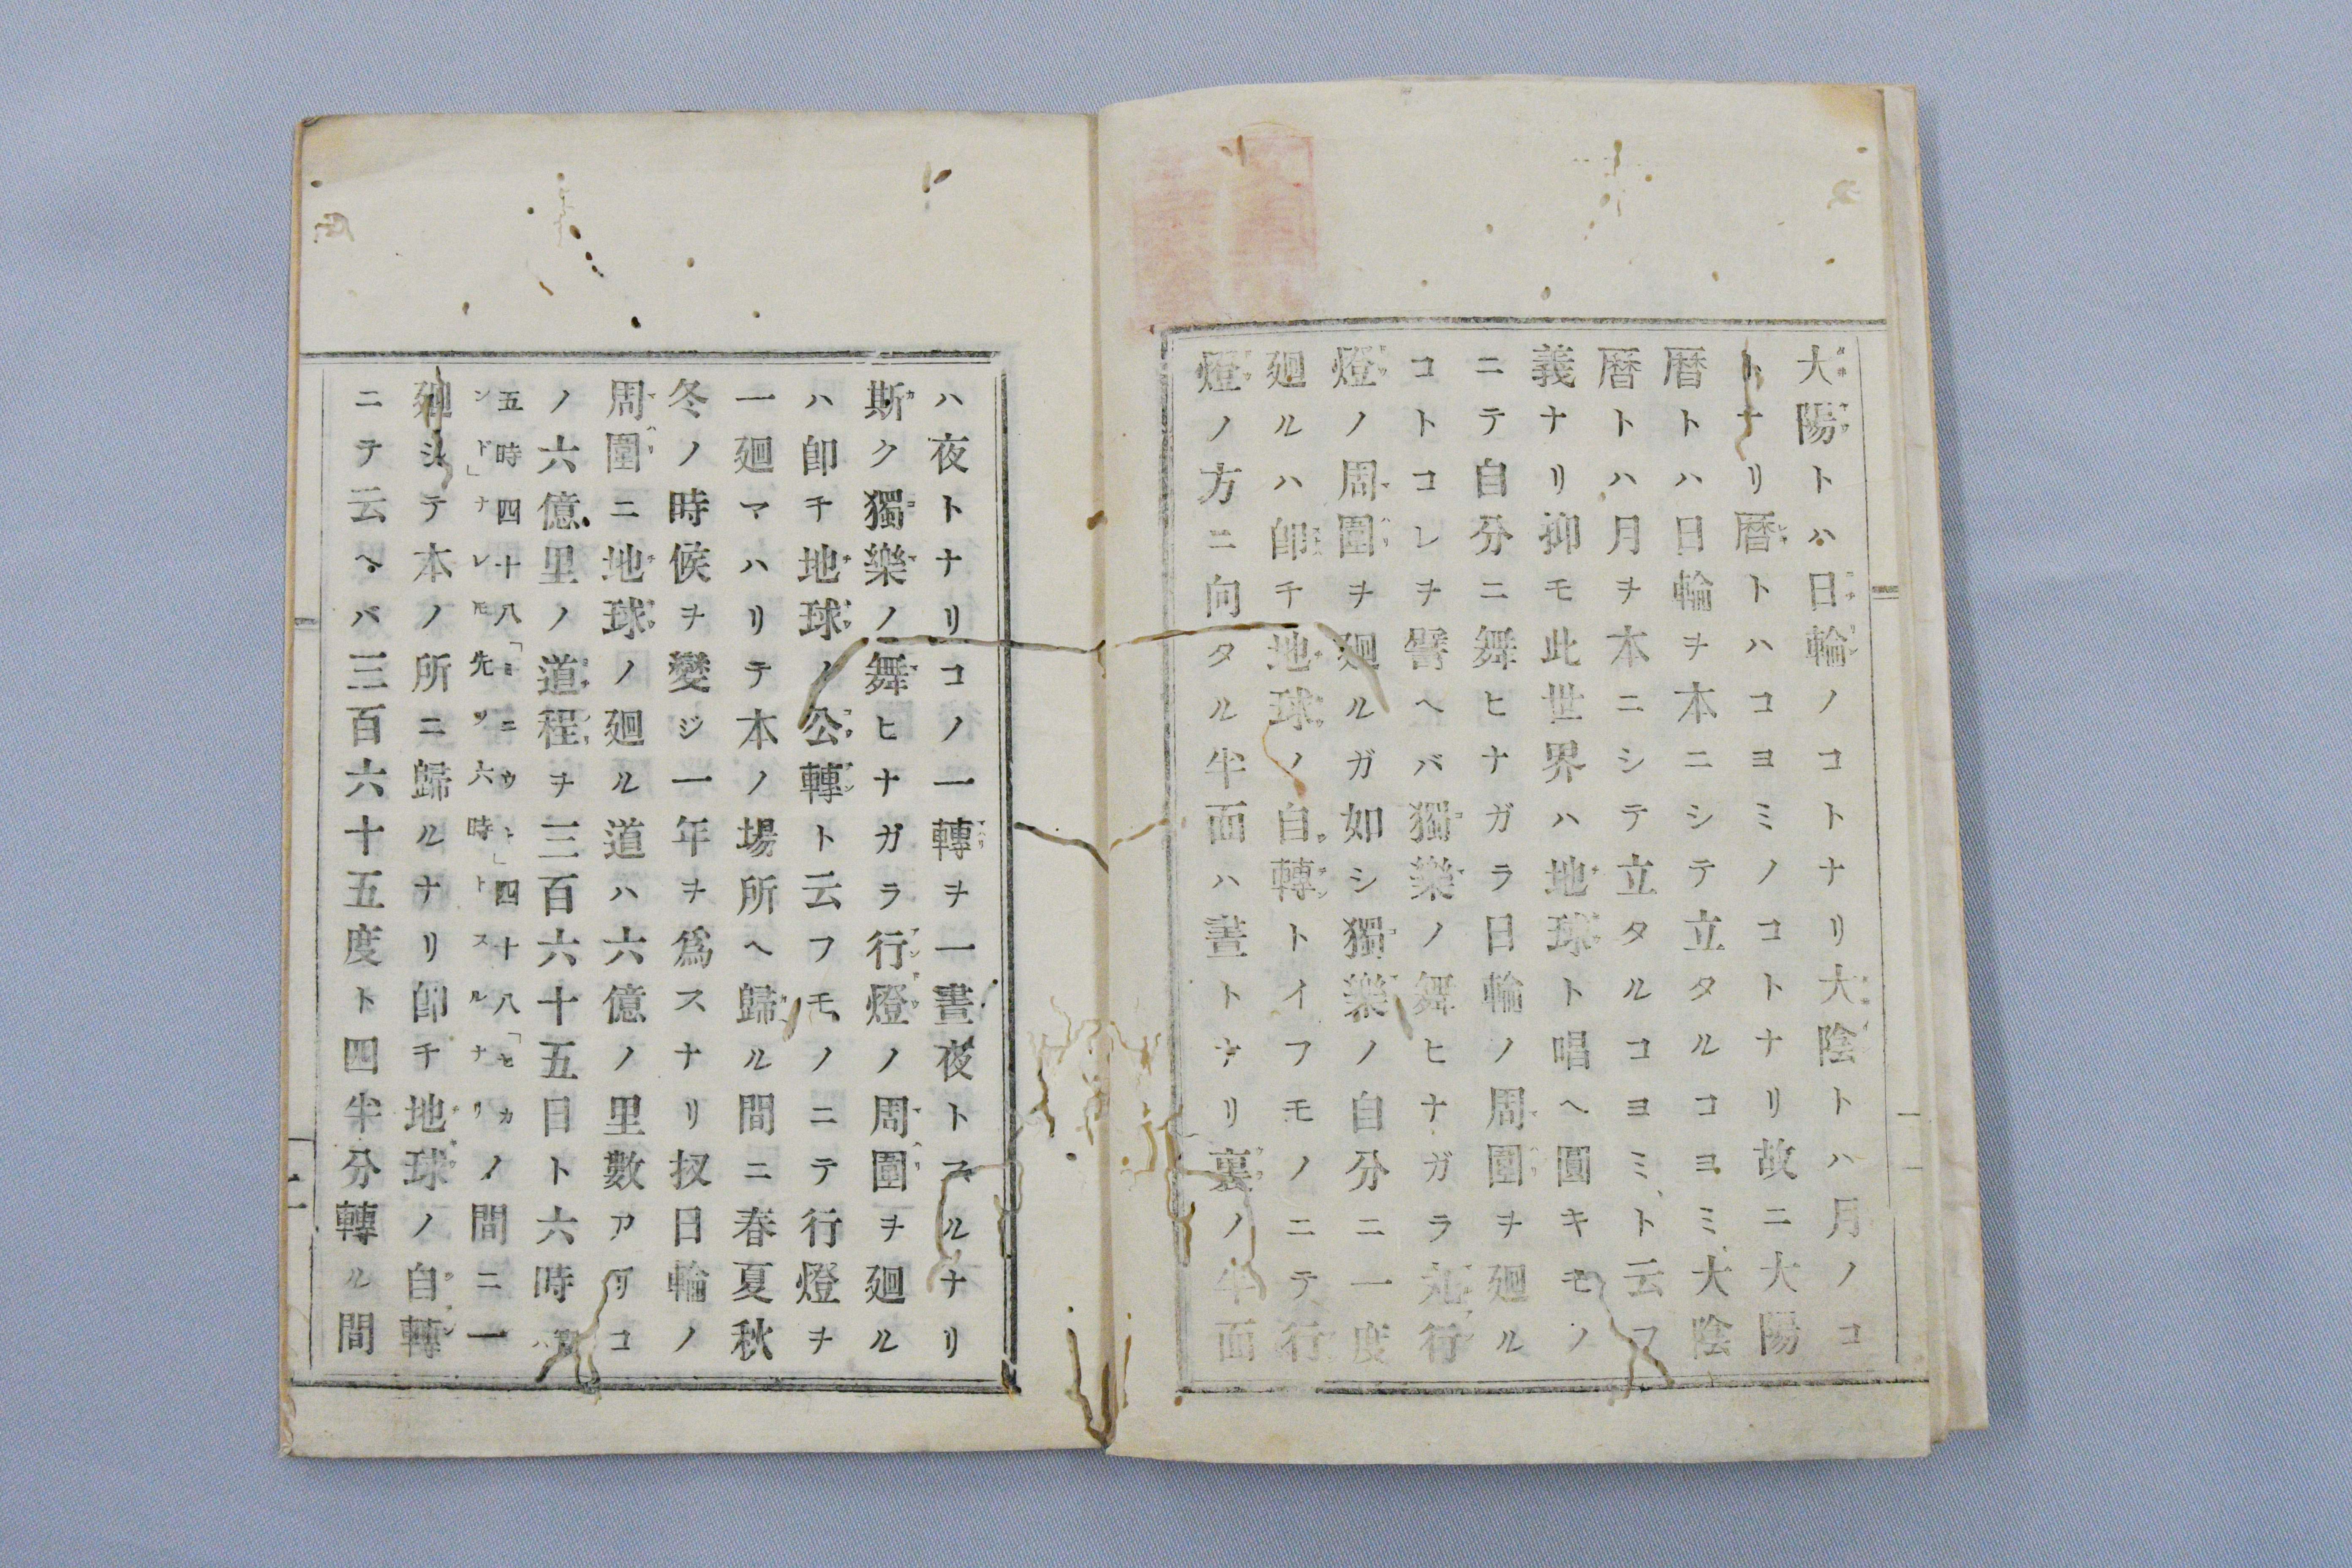 大陽トハ日輪ノコトナリ大陰トハ月ノコ
トナリ暦トハコヨミノコトナリ故ニ大陽
暦トハ日輪ヲ本ニシテ立タルコヨミ大陰
暦トハ月ヲ本ニシテ立タルコヨミト云フ
義ナリ抑モ此世界ハ地球ト唱ヘ圓キモノ
ニテ自分ニ舞ヒナガラ日輪ノ周圍ヲ廻ル
コトコレヲ譬ヘバ獨樂ノ舞ヒナガラ丸行
燈ノ周圍ヲ廻ルガ如シ獨樂ノ自分ニ一度
廻ルハ卽チ地球ノ自轉トイフモノニテ行
燈ノ方ニ向タル半面ハ晝トナリ裏ノ半面
ハ夜トナリコノ一轉ヲ一晝夜トスルナリ
斯ク獨樂ノ舞ヒナガラ行燈ノ周圍ヲ廻ル
ハ卽チ地球ノ公轉ト云フモノニテ行燈ヲ
一廻マハリテ本ノ場所ヘ歸ル間ニ春夏秋
冬ノ時候ヲ變ジ一年ヲ爲スナリ扨日輪ノ
周圍ニ地球ノ廻ル道ハ六億ノ里數アリコ
ノ六億里ノ道程ヲ三百六十五日ト六時
五時四十八「ミニウト」四十八「セカ
ンド」ナレ𪜈先ツ六時トスルナリ
ノ間ニ一
廻シテ本ノ所ニ歸ルナリ卽チ地球ノ自轉
ニテ云ヘバ三百六十五度ト四半分轉ル間